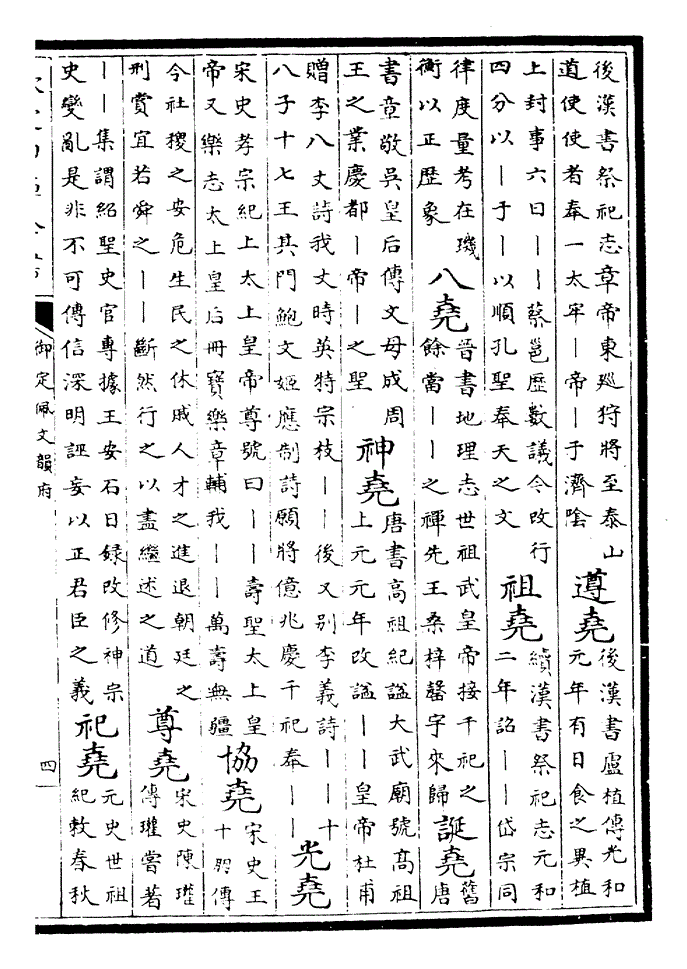 後漢書祭祀志章帝東廵狩將至泰山
道使使者奉一太牢丨帝丨于濟隂
遵堯
後漢書盧植傳光和
元年有日食之異植
上封事六曰丨丨蔡邕歴數議令改行
四分以丨于丨以順孔聖奉天之文
祖堯
續漢書祭祀志元和
二年詔丨丨岱宗同
律度量考在璣
衡以正歴象
八堯
晉書地理志世祖武皇帝接千祀之
餘當丨丨之禪先王桑梓罄宇來歸
誕堯
舊唐
書章敬吳皇后傳文母成周
王之業慶都丨帝丨之聖
神堯
唐書高祖紀謚大武廟號髙祖
上元元年改謚丨丨皇帝杜甫
贈李八丈詩我丈時英特宗枝丨丨後又别李義詩丨丨十
八子十七王其門鮑文姬應制詩願將億兆慶千祀奉丨丨
光堯
宋史孝宗紀上太上皇帝尊號曰丨丨壽聖太上皇
帝又樂志太上皇后冊寶樂章輔我丨丨萬壽無疆
協堯
宋史王
十朋傳
今社稷之安危生民之休戚人才之進退朝廷之
刑賞宜若舜之丨丨斷然行之以盡繼述之道
尊堯
宋史陳瓘
傳瓘嘗著
丨丨集謂紹聖史官專據王安石日録改修神宗
史變亂是非不可傳信深明誣妄以正君臣之義
祀堯
元史世祖
紀敕春秋
御定佩文韻府
四